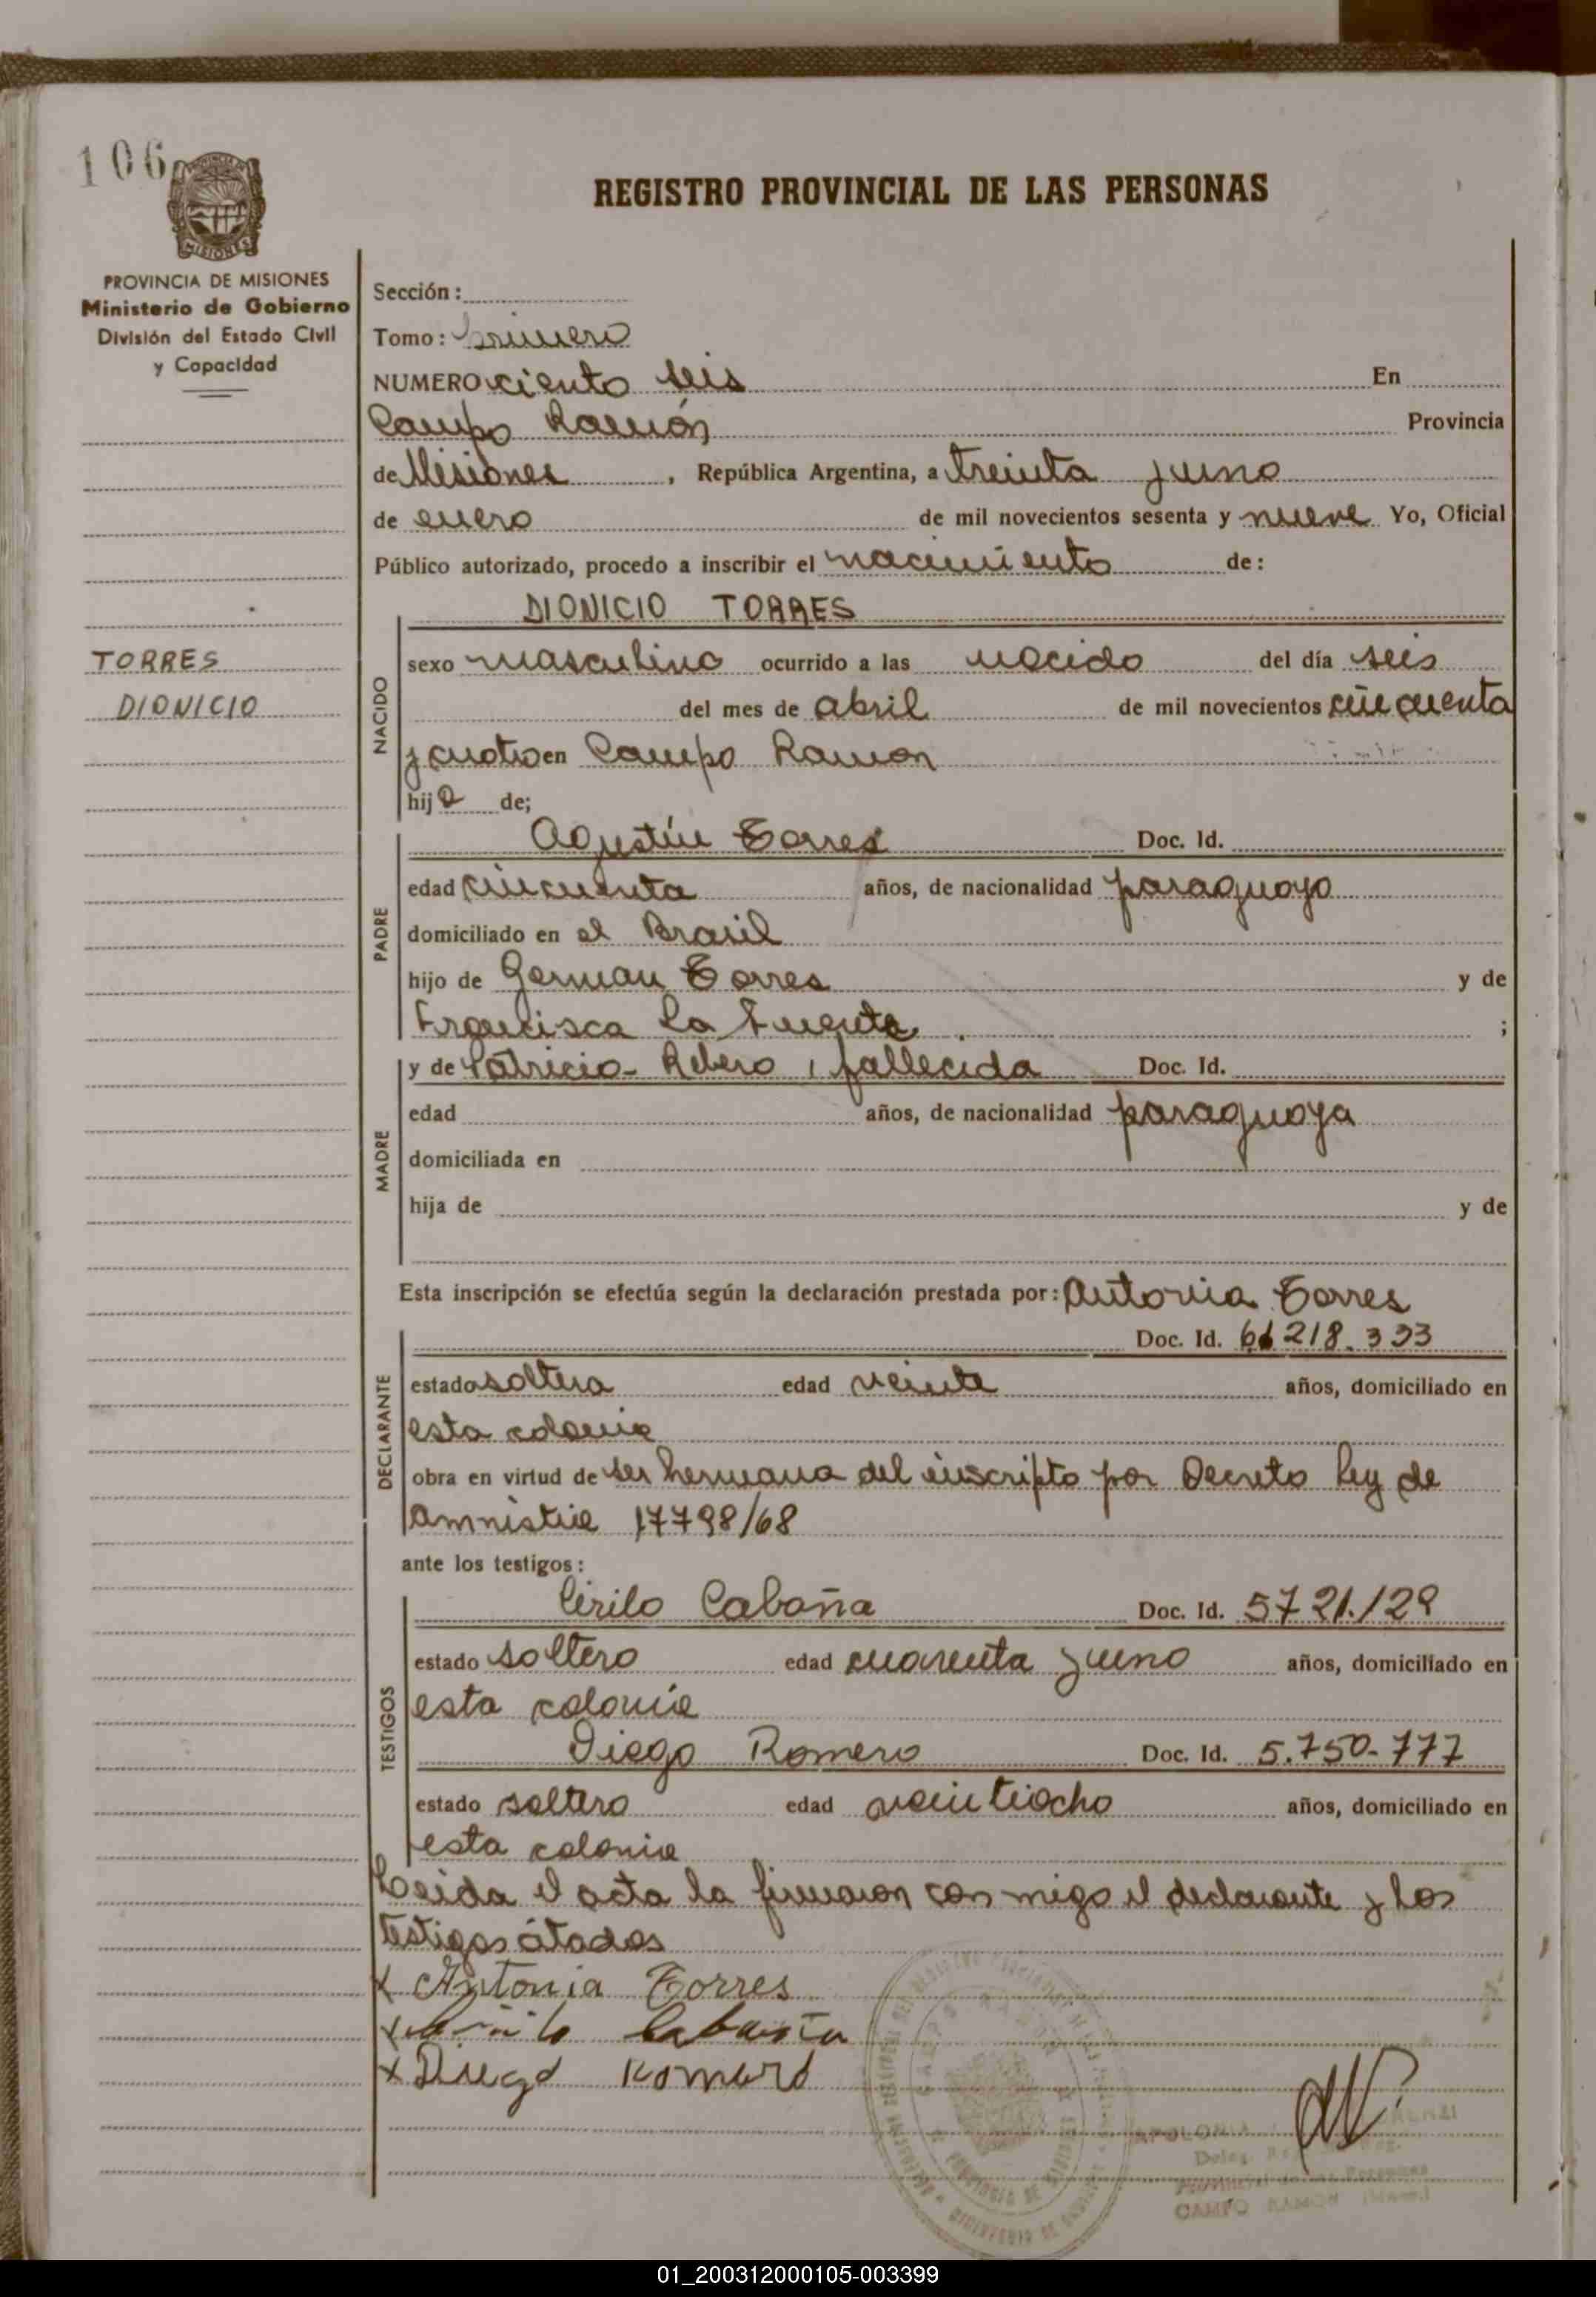 106
PROVINCIA DE MISIONES
Ministerio de Gobierno
División del Estado Civil
y Capacidad
TORRES
DIONICIO
REGISTRO PROVINCIAL DE LAS PERSONAS
Sección:
Tomo: primero
NUMERO ciento seis En
Campo Ramón Provincia
de Misiones, República Argentina, a treinta y uno
de enero de mil novecientos sesenta y nueve Yo, Oficial
Público autorizado, procedo a inscribir el nacimiento de:
NACIDO
DIONICIO TORRES
sexo masculino ocurrido a las nacido del día seis
del mes de abril de mil novecientos cincuenta
y cuatro en Campo Ramon
hijo de;
PADRE
Agustín Torres Doc. Id.
edad cincuenta años, de nacionalidad paraguayo
domiciliado en el Brasil
hijo de German Torres y de
Francisca La Fuente ;
MADRE
y de Patricia Rebero, fallecida Doc. Id.
edad años, de nacionalidad paraguaya
domiciliada en
hija de y de
Esta inscripción se efectúa según la declaración prestada por: Antonia Torres
DECLARANTE
Doc. Id. 218.333
estado soltera edad veinte años, domiciliado en
esta colonia
obra en virtud de ser hermana del inscripto por Decreto Ley de
amnistia 17798/68
ante los testigos:
TESTIGOS
Cirilo Cabaña Doc. Id. 5721.129
estado soltero edad cuarenta y uno años, domiciliado en
esta colonia
Diego Romero Doc. Id. 5.750-777
estado soltero edad veintiocho años, domiciliado en
esta colonia
Leida el acta la firmaron con migo el declarante y los
testigos citados
x Antonia Torres
x Cirilo Cabaña
x Diego Romero
APOLONIA
CAMPO RAMON
01_200312000105-003399